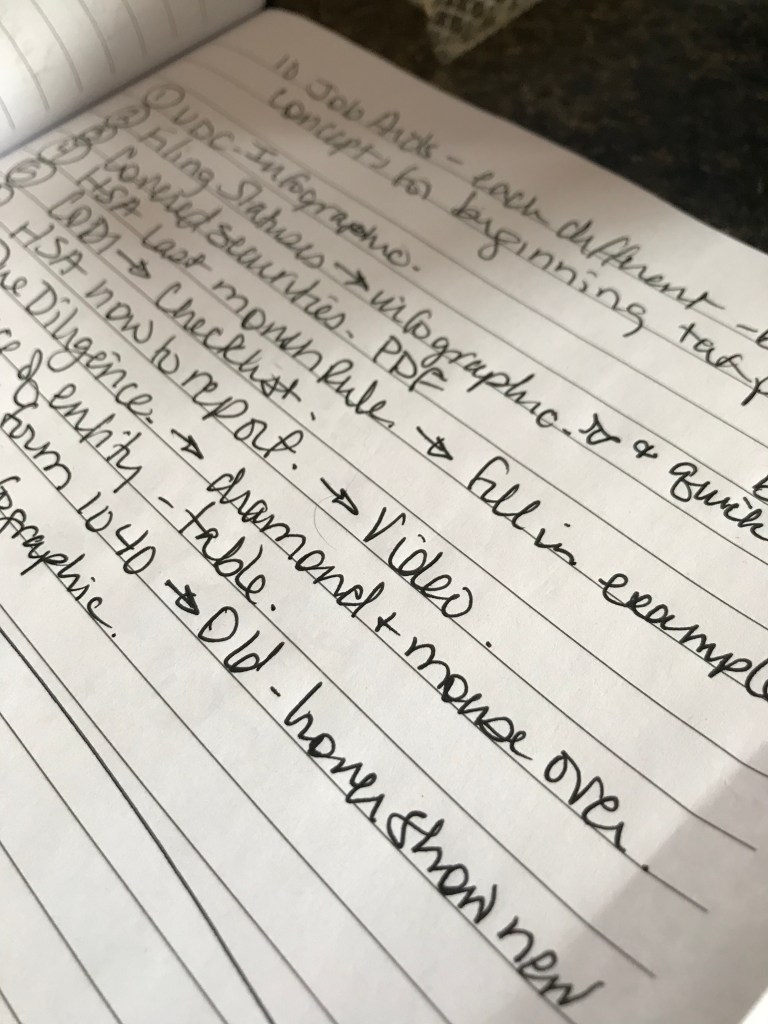 10 Job Aids - each different -
concepts for beginning tax
① UDC - Infographic.
② Filing Statuses → infographic. & quick
Covered securities. PDF
HSA last month Rule → fill in example
⑤ → Checklist.
HSA how to report. → Video.
Due Diligence. → diamond + mouse over.
of entity - table.
form 1040 → Old - hover show new
graphic.